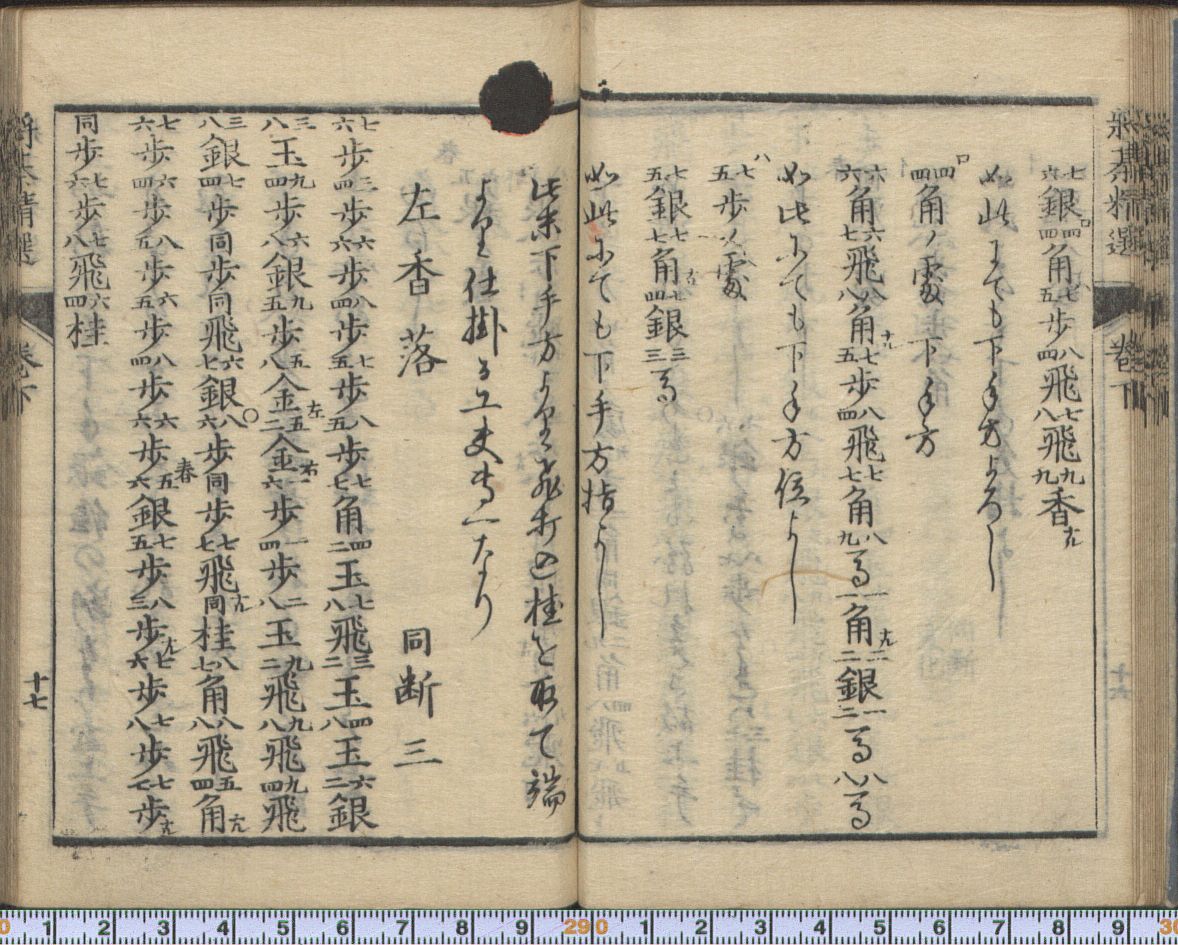 将棊精選 巻下
七六銀ロ四四角ハ七五歩八四飛七八飛九九香成
如此にても下手方よろし
ロ四四角ノ處下手方
六六角六七飛八八角成七五歩八四飛七七角八九馬一一角成二二銀一二馬八八馬
如此にても下手方位よし
ハ七五歩ノ處
七五銀七七角成七四銀三三馬
如此にても下手方指よし
此末下手方より飛打込桂を取て端
より仕掛る工夫専一なり
左香落 同断三
七六歩三四歩六六歩八四歩七五歩八五歩七七角四二玉七八飛三二玉四八玉六二銀
三八玉九四歩六八銀九五歩五八金左五二金右一六歩一四歩二八玉九二飛九八飛九四飛
三八銀七四歩同歩同飛六七銀○八六歩同歩七七飛成同桂八七角八八飛五四角成
七六歩六四歩八五歩六五歩八四歩六六歩五六銀春七五歩八三歩成七六歩七八歩七七歩成
同歩七六歩七八飛六四桂
将棊精選 巻下 十七